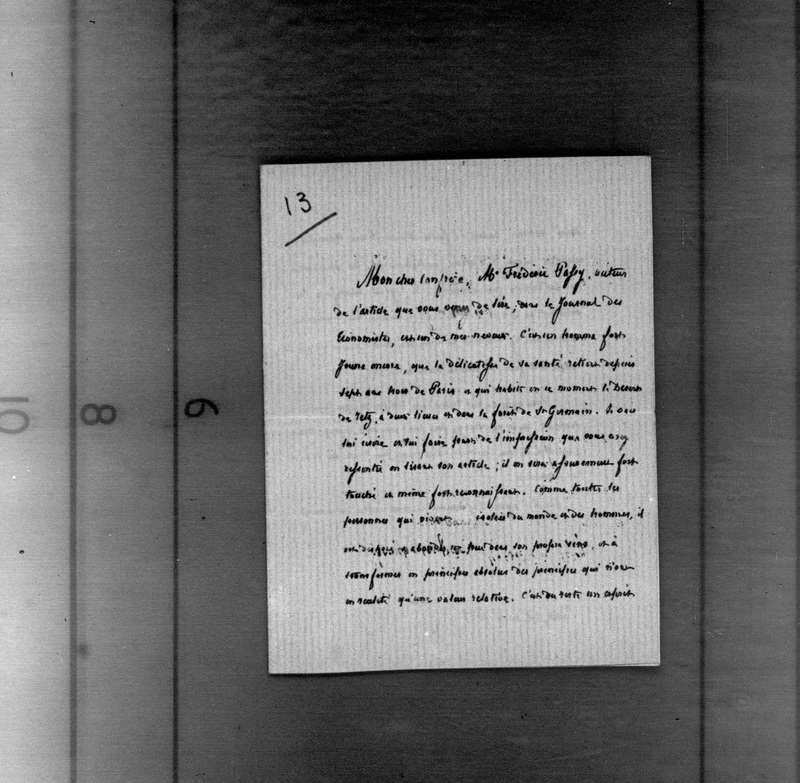 13
Mon cher confrère, Mr Frédéric Passy, auteur
de l'article que vous venez de lire, dans le Journal des
Economistes, est un de mes neveux. C'est un homme fort
jeune encore, que la délicatesse de sa santé retient depuis
sept ans hors de Paris et qui habite en ce moment le Desert
de retz, à deux lieues et dans la forêt de St Germain. Je vais
lui écrire et lui faire part de l'impression que vous avez
ressentie en lisant son article ; il en sera assurement fort
touché et même fort reconnaissant. Comme toutes les
personnes qui vivent isolées du monde et des hommes, il
est disposé abonder un peu dans son propre sens, et à
transformer en principes absolus des principes qui n'ont
en realité qu'une valeur relative. C'est du reste un esprit
10
8
6